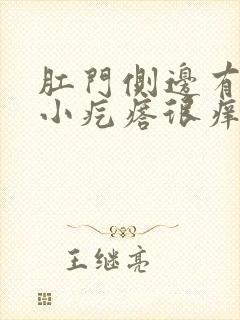 肛門側邊有
小疙瘩很癢
王继亮